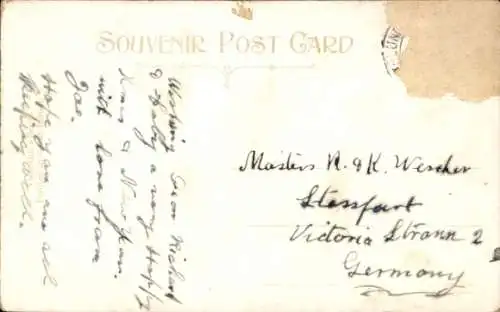 SOUVENIR POST CARD
Wishing Eva Richard
& Baby a very Happy
Xmas & New Year.
with love from
Joe.
Hope you are all
keeping well.
Masters R. & K. Wescher
Stassfurt
Victoria Strann 2
Germany